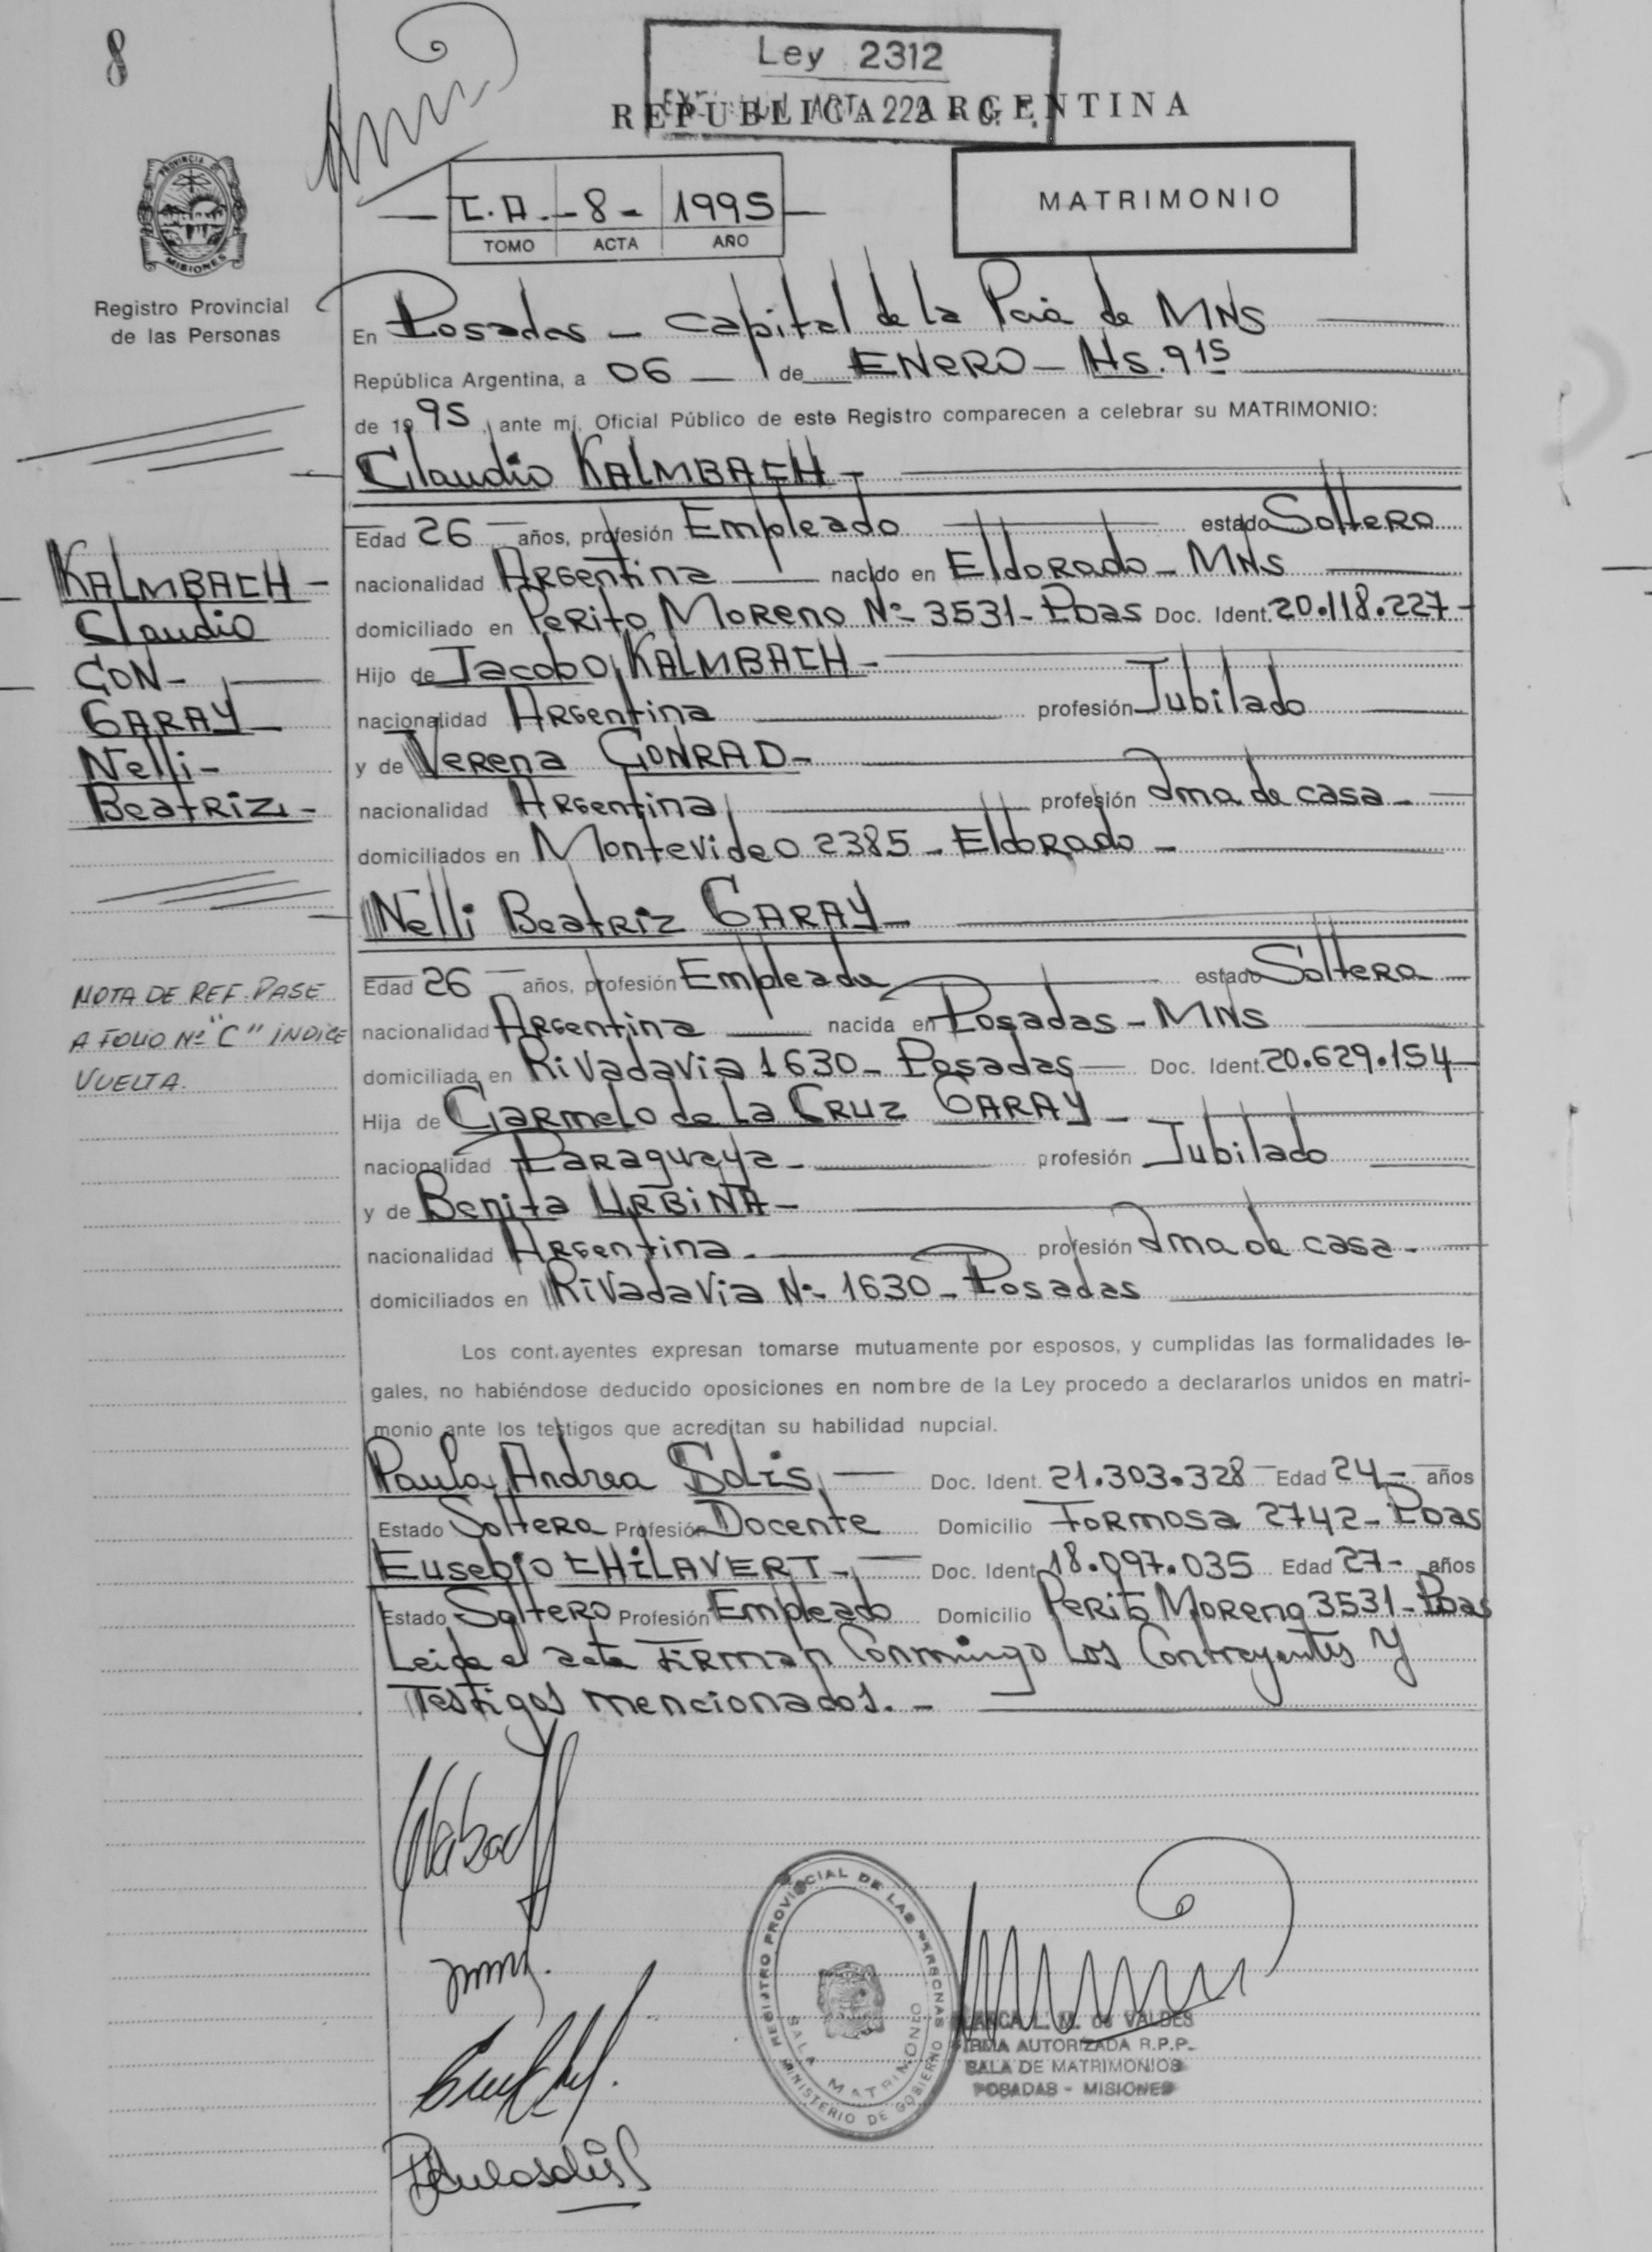 8
Ley 2312
ACT. 222
REPUBLICA ARGENTINA
PROVINCIA
MISIONES
Registro Provincial
de las Personas
T.A. - 8 - 1995
TOMO ACTA AÑO
MATRIMONIO
En Posadas - Capital de la Pcia de MNS
República Argentina, a 06 de ENERO - Hs. 9 15
de 1995, ante mi, Oficial Público de este Registro comparecen a celebrar su MATRIMONIO:
Claudio KALMBACH -
Edad 26 años, profesión Empleado estado Soltero
nacionalidad Argentina nacido en Eldorado - MNS
domiciliado en Perito Moreno Nº 3531 - Pdas Doc. Ident. 20.118.227 -
Hijo de Jacobo KALMBACH -
nacionalidad Argentina profesión Jubilado
y de Verena CONRAD -
nacionalidad Argentina profesión Ama de casa -
domiciliados en Montevideo 2385 - Eldorado -
KALMBACH -
Claudio
CON -
GARAY -
Nelli -
Beatriz -
Nelli Beatriz GARAY -
Edad 26 años, profesión Empleada estado Soltera
nacionalidad Argentina nacida en Posadas - MNS
domiciliada en Rivadavia 1630 - Posadas Doc. Ident. 20.629.154
Hija de Carmelo de la Cruz GARAY -
nacionalidad Paraguaya - profesión Jubilado
y de Benita URBINA -
nacionalidad Argentina - profesión Ama de casa -
domiciliados en Rivadavia Nº 1630 - Posadas
NOTA DE REF. PASE
A FOLIO Nº "C" INDICE
VUELTA.
Los contrayentes expresan tomarse mutuamente por esposos, y cumplidas las formalidades le-
gales, no habiéndose deducido oposiciones en nombre de la Ley procedo a declararlos unidos en matri-
monio ante los testigos que acreditan su habilidad nupcial.
Paula Andrea Solis Doc. Ident. 21.303.328 Edad 24 - años
Estado Soltera Profesión Docente Domicilio Formosa 2742 - Pdas
Eusebio CHILAVERT - Doc. Ident. 18.097.035 Edad 27 - años
Estado Soltero Profesión Empleado Domicilio Perito Moreno 3531 - Pdas
Leida el acta Firman Conmingo los Contrayentes y
Testigos mencionados. -
REGISTRO PROVINCIAL DE LAS PERSONAS
SALA MATRIMONIO
MINISTERIO DE GOBIERNO
BLANCA L. M. de VALDES
FIRMA AUTORIZADA R.P.P.
SALA DE MATRIMONIOS
POSADAS - MISIONES
Paulasolis